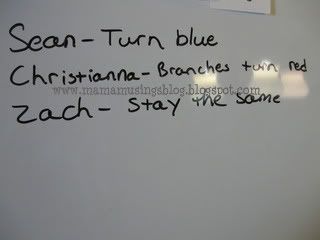 Sean - Turn blue
Christianna - Branches turn red
www.mamamusingsblog.blogspot.com
Zach - Stay the same